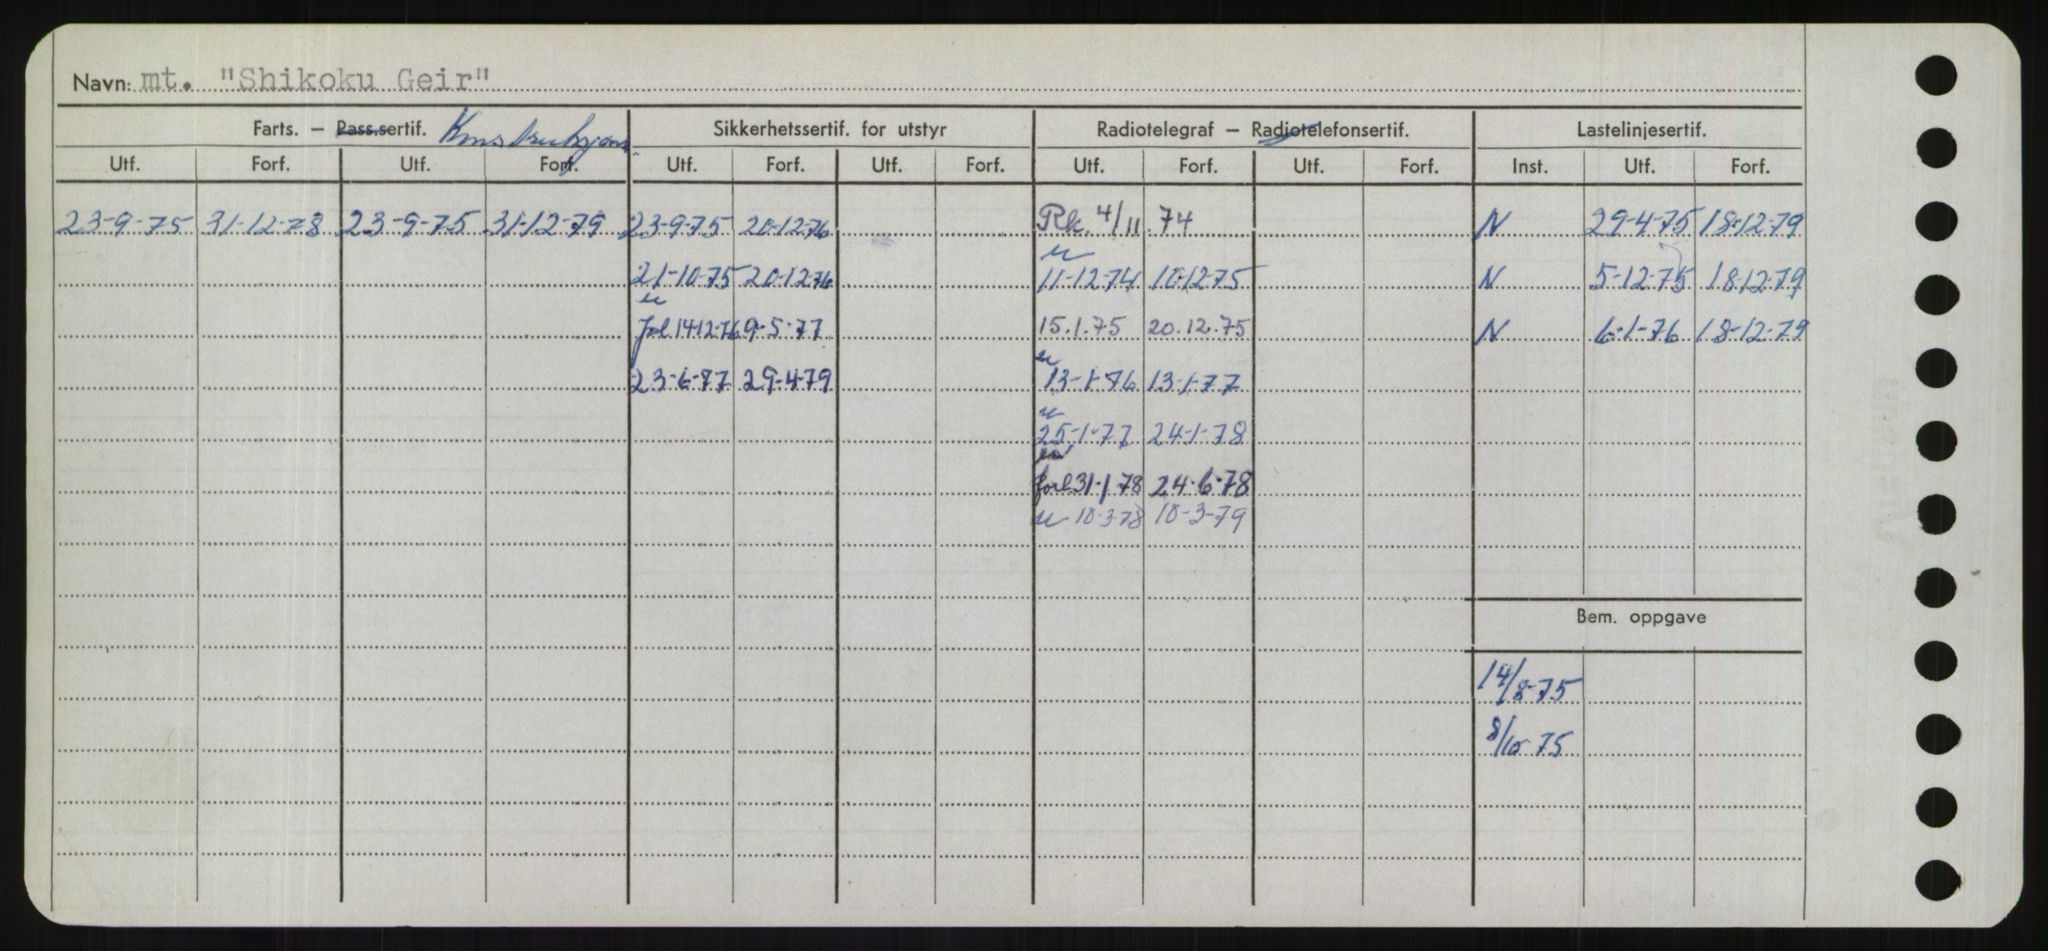 Navn: mt. "Shikoku Geir"
Farts. – Pass.sertif. Konstruksjons. Sikkerhetssertif. for utstyr Radiotelegraf – Radiotelefonsertif. Lastelinjesertif.
Utf. Forf. Utf. Forf. Utf. Forf. Utf. Forf. Utf. Forf. Utf. Forf. Inst. Utf. Forf.
23-9-75 31-12-78 23-9-75 31-12-79 23-9-75 20-12-76 Rk 4/11.74 N 29-4-75 18-12-79
21-10-75 20-12-76 11-12-74 10-12-75 N 5-12-75 18-12-79
forl 14-12-76 9-5-77 15.1.75 20.12.75 N 6-1-76 18-12-79
23-6-77 29-4-79 13-1-76 13-1-77
25-1-77 24-1-78
forl 31-1-78 24-6-78
10-3-78 10-3-79
Bem. oppgave
14/8-75
8/10-75